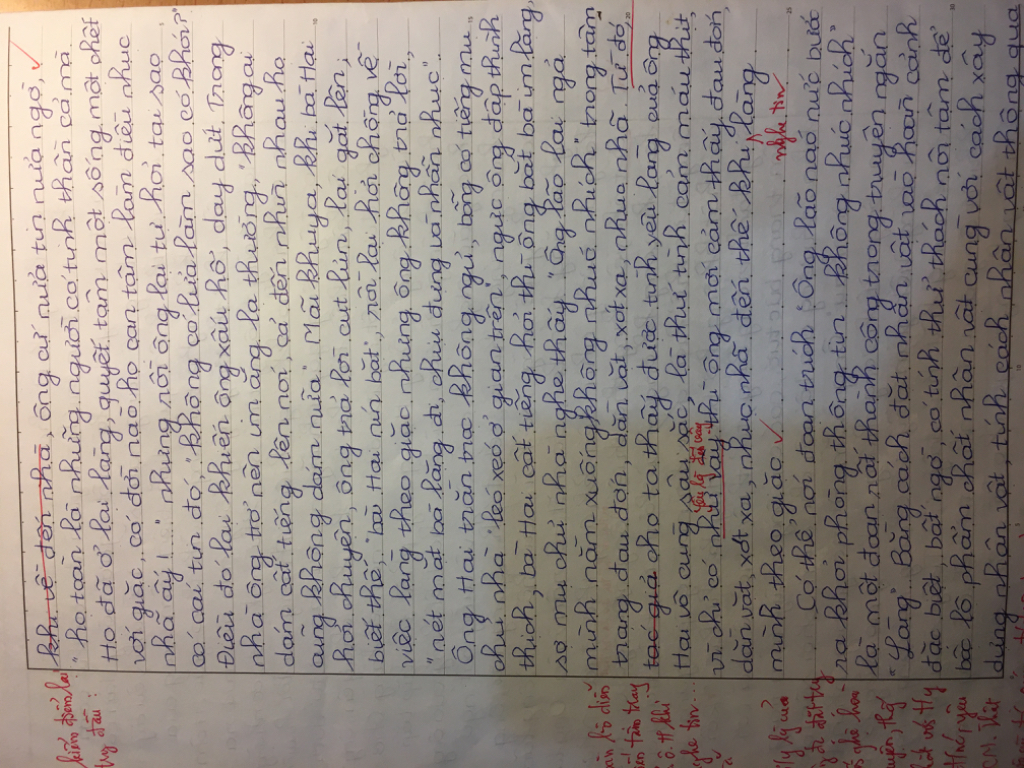 khi về đến nhà, ông cứ nửa tin nửa ngờ,
"họ toàn là những người có tinh thần cả mà
Họ đã ở lại làng, quyết tâm một sống một chết
với giặc, có đời nào họ cam tâm làm điều nhục
nhã ấy!..." nhưng rồi ông lại tự hỏi tại sao
có cái tin đó, "không có lửa làm sao có khói?"
Điều đó lại khiến ông xấu hổ, day dứt. Trong
nhà ông trở nên im ắng lạ thường, "không ai
dám cất tiếng lên nói, cả đến nhìn nhau họ
cũng không dám nữa". Mãi khuya, khi bà Hai
hỏi chuyện, ông trả lời cụt lủn, lại gắt lên,
biết thế, bà Hai nín bặt, rồi lại hỏi chồng về
việc làng theo giặc nhưng ông không trả lời,
"nét mặt bà lặng đi, chịu đựng và nhẫn nhục".
Ông Hai trằn trọc không ngủ, bỗng có tiếng mụ
chủ nhà "léo xéo ở gian trên", ngực ông đập thình
thịch, bà Hai cất tiếng hỏi thì ông bắt bà im lặng,
sợ mụ chủ nhà nghe thấy. "Ông lão lại ngả
mình nằm xuống không nhúc nhích" trong tâm
trạng đau đớn, dằn vặt, xót xa, nhục nhã. Từ đó,
tác giả cho ta thấy được tình yêu làng của ông
Hai vô cùng sâu sắc, là thứ tình cảm máu thịt,
vì chỉ có như vậy thì ông mới cảm thấy đau đớn,
dằn vặt, xót xa, nhục nhã đến thế khi làng
nghe tin
mình theo giặc.
Có thể nói đoạn trích "Ông lão náo nức bước
ra khỏi phòng thông tin... không nhúc nhích"
là một đoạn rất thành công trong truyện ngắn
"Làng". Bằng cách đặt nhân vật vào hoàn cảnh
đặc biệt, bất ngờ, có tính thử thách nội tâm để
bộc lộ phẩm chất nhân vật cùng với cách xây
dựng nhân vật, tính cách nhân vật thông qua